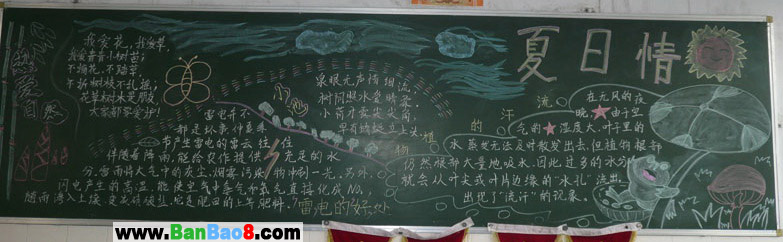 www.BanBao8.com
热爱自然
我爱花,我爱草,
我爱青青小树苗;
不摘花,不踏草,
不折树枝不乱摇;
花草树木是朋友,
大家都要爱护!
雷电并不
都是坏事 仲夏季
节产生雷电的雷云 往往
伴随着降雨,能给农作提供 充足的水
分,雷雨将大气中的灰尘、烟雾污染物冲刷一光。另外,
闪电产生的高温,能使空气中氮气和氧气直接化成NO₂,
随雨落入土壤 变成硝酸盐,它是肥田的上等肥料。
雷电的好处
泉眼无声惜细流,
树阴照水爱晴柔。
小荷才露尖尖角,
早有蜻蜓立上头。
夏日情
植物的汗流
在无风的夜
晚 由于空
气的 湿度大,叶子里的
水蒸发无法及时散发出去,但植物根部
仍然根部大量地吸水,因此过多的水分
就会从叶尖或叶片边缘的“水孔”流出,
出现了“流汗”的现象。
www.BanBao8.com